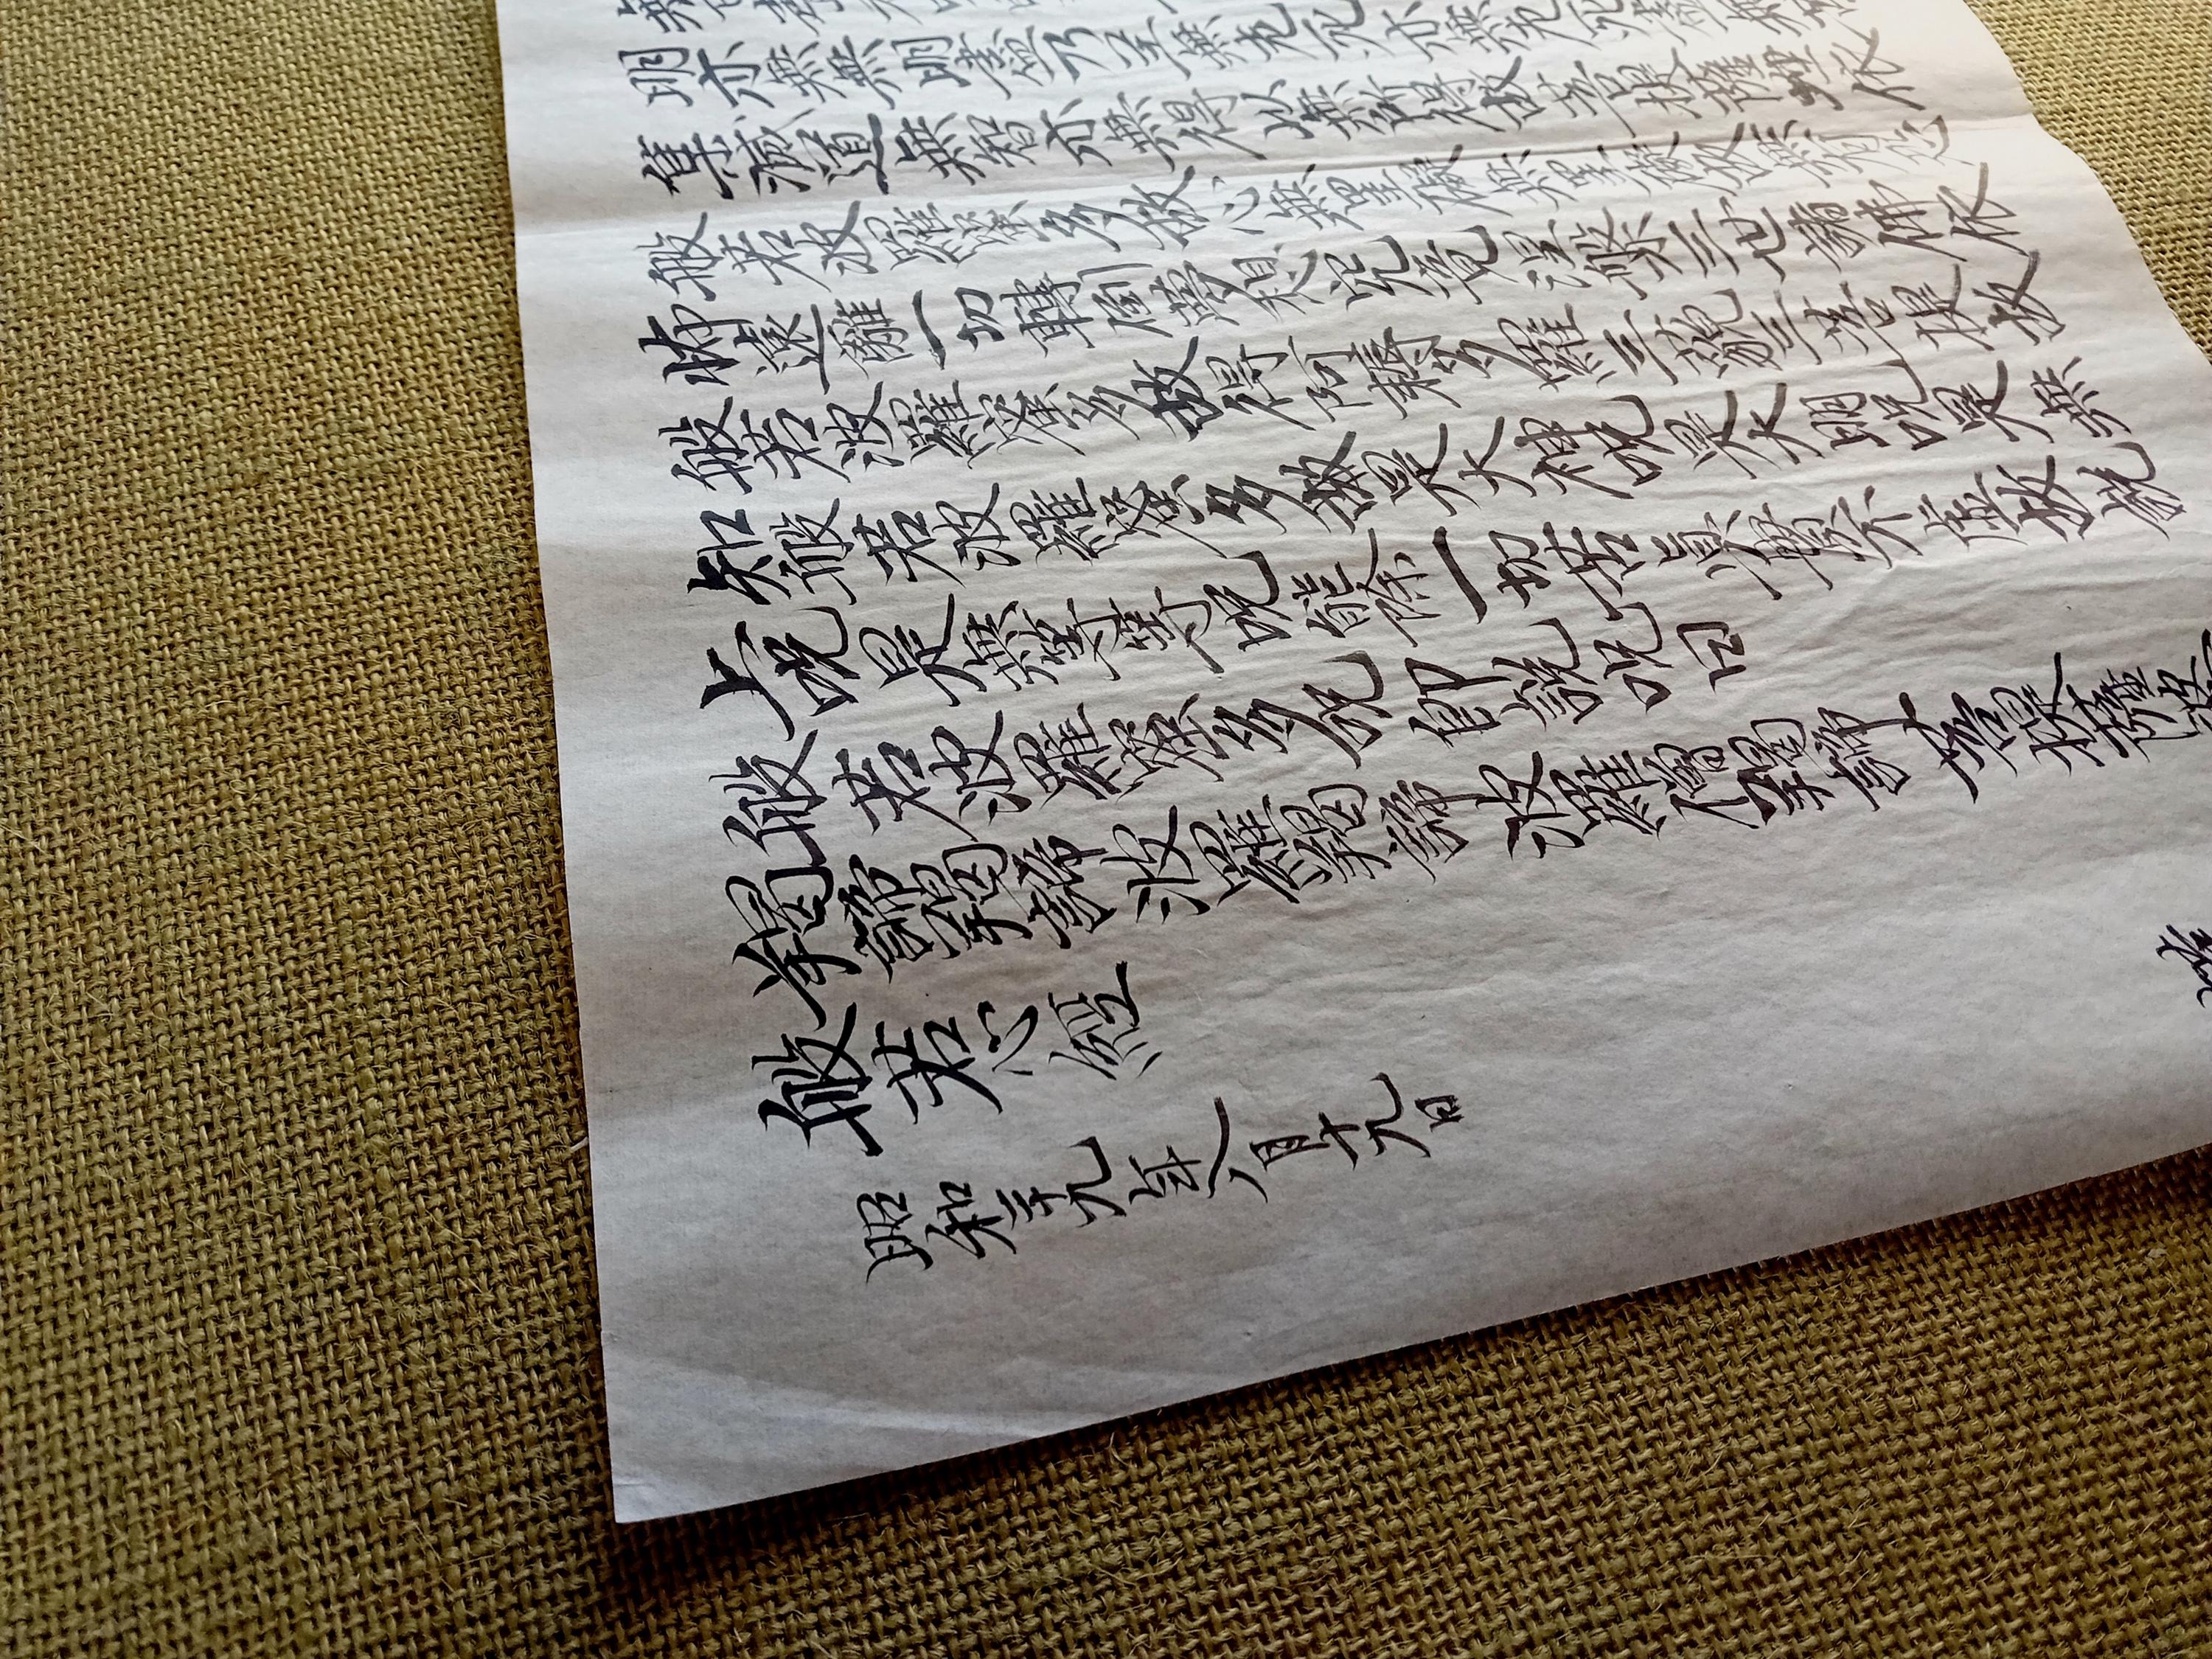 明亦無無明盡乃至無老死亦無老死盡無苦
集滅道無智亦無得以無所得故菩提薩埵依
般若波羅蜜多故心無罣礙無罣礙故無有恐
怖遠離一切顛倒夢想究竟涅槃三世諸佛依
般若波羅蜜多故得阿耨多羅三藐三菩提故
知般若波羅蜜多故是大神呪是大明呪是無
上呪是無等等呪能除一切苦真實不虚故説
般若波羅蜜多呪即説呪曰
羯諦羯諦波羅羯諦波羅僧羯諦 菩提薩婆
般若心經
昭和三十九年八月十九日